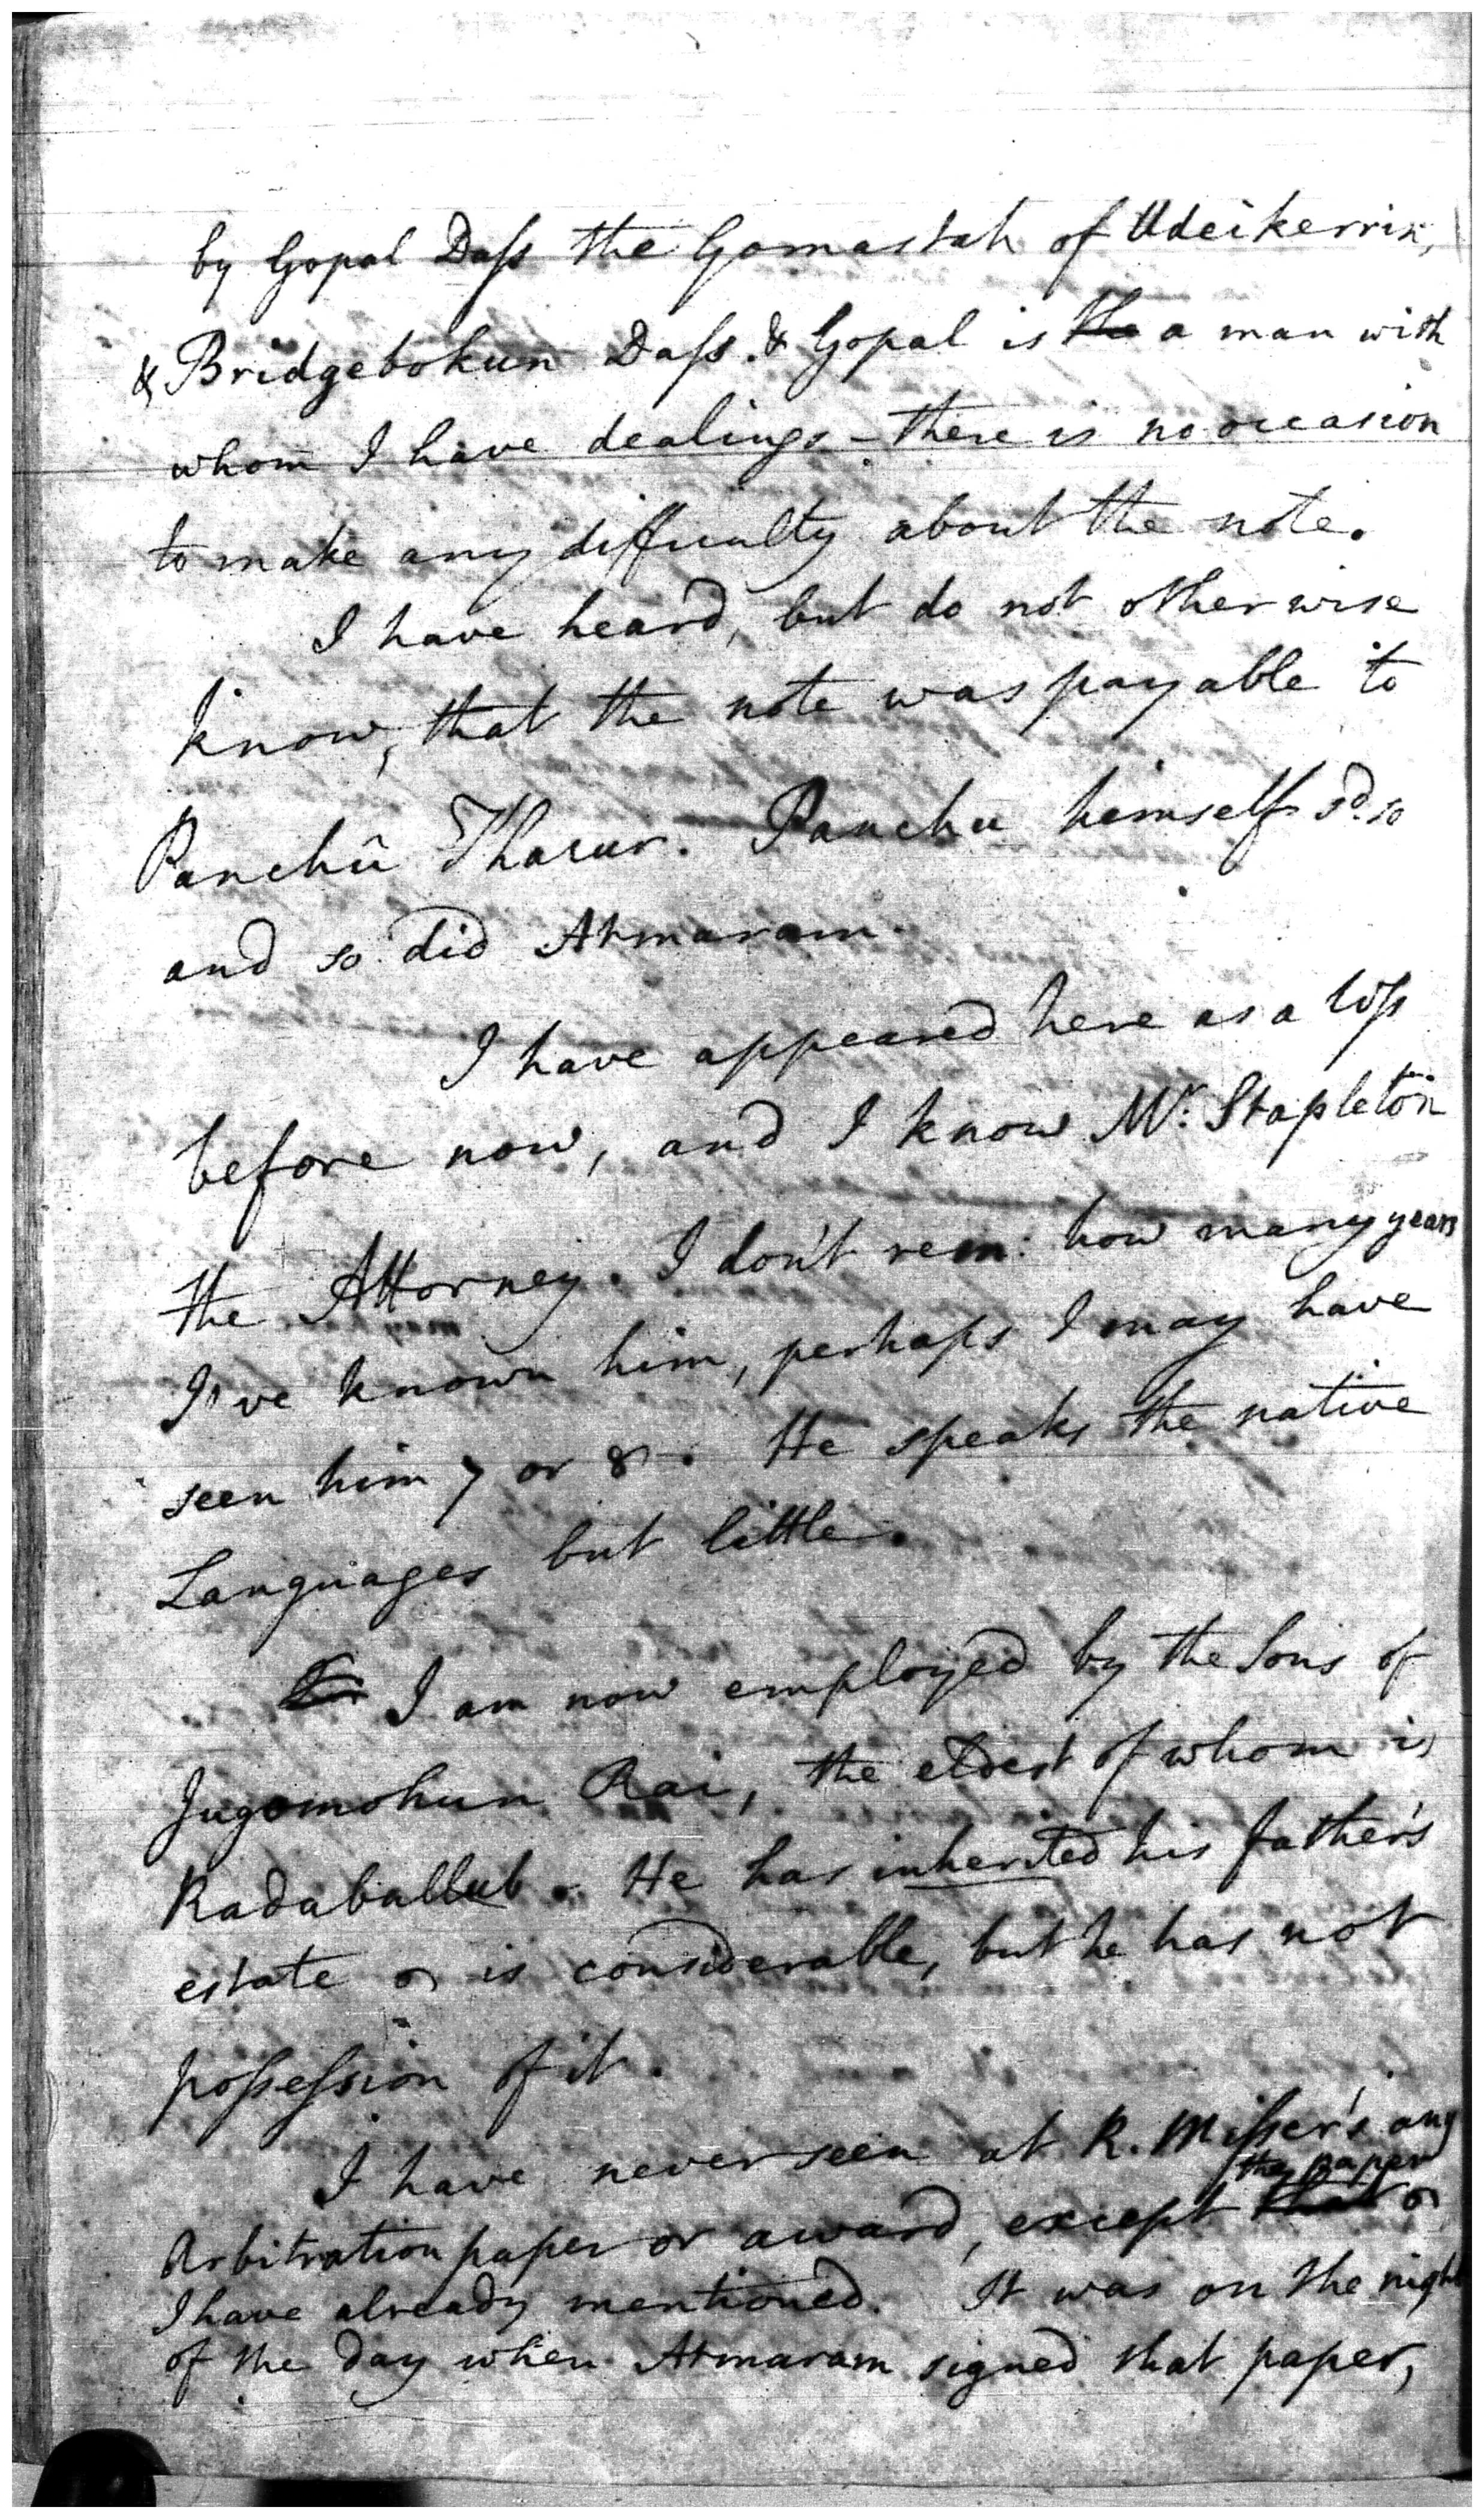 by Gopal Dass the Gomastah of Udeikerrin,
& Bridgebokun Dass. & Gopal is the a man with
whom I have dealings – there is no occasion
to make any difficulty about the note.
I have heard, but do not otherwise
know, that the note was payable to
Panchû Tharur. Panchu himself sd. so
and so did Atmaram.
I have appeared here as a
before now, and I know Mr. Stapleton
the Attorney. I don't rem: how many years
I've known him, perhaps I may have
seen him 7 or 8. He speaks the native
Languages but little.
I am now employed by the Sons of
Jugomohun Rai, the eldest of whom is
Radaballub. He has inherited his father's
estate is considerable, but he has not
possession of it.
I have never seen at R. Misser's any
the paper
Arbitration paper or award, except that
I have already mentioned. It was on the night
of the day when Atmaram signed that paper,